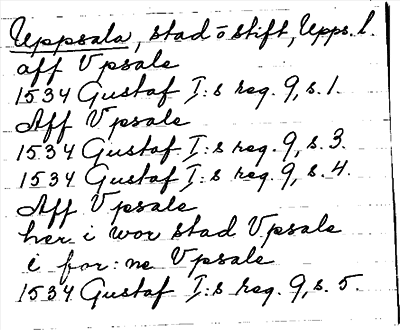 Uppsala, stad o stift, Upps. l.
aff Vpsale
1534 Gustaf I:s reg. 9, s. 1.
Aff Vpsale
1534 Gustaf I:s reg. 9, s. 3.
1534 Gustaf I:s reg. 9, s. 4.
Aff Vpsale
her i wor stad Vpsale
i for:ne Vpsale
1534 Gustaf I:s reg. 9, s. 5.